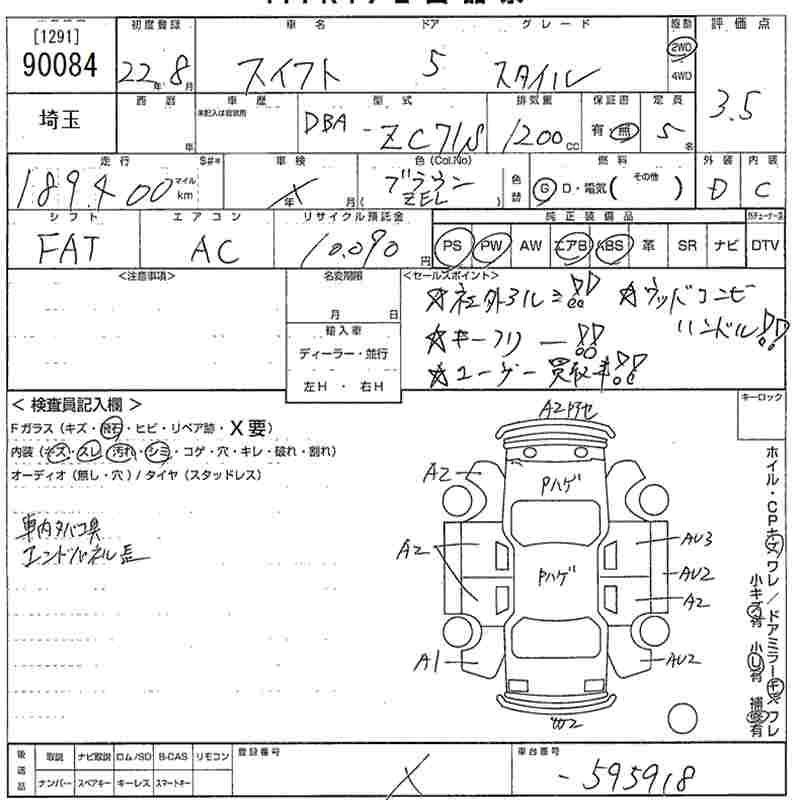 [1291]
90084
埼玉
初度登録 車名 ドア グレード 駆動 評価点
22年 8月 スイフト 5 スタイル 2WD 4WD 3.5
西暦 車歴 型式 排気量 保証書 定員
年 未記入は自家用 DBA -ZC71S 1200cc 有・無 5名
走行 $#* 車検 色(Col.No) 燃料 外装 内装
189,400 マイル km X年 月 ブラウン ZEL ( ) 色替 G D・電気( その他 ) D C
シフト エアコン リサイクル預託金 純正装備品
FAT AC 10.090円 PS PW AW エアB ABS 革 SR ナビ DTV
<注意事項> 名変期限 <セールスポイント>
月 日
輸入車
ディーラー・並行
左H ・ 右H
☆社外アルミ!! ☆ウッドコンビハンドル!!
☆キーフリー!!
☆ユーザー買取車!!
< 検査員記入欄 > キーロック
Fガラス(キズ・飛石・ヒビ・リペア跡・X要)
内装(キズ・スレ・汚れ・シミ・コゲ・穴・キレ・破れ・割れ)
オーディオ(無し・穴)/タイヤ(スタッドレス)
車内タバコ臭
エンドパネル
A2
A2
Pハゲ
AU3
A2
Pハゲ
AU2
A2
A1
AU2
ホイル・CPキズワレ/ドアミラーキズワレ
小キズ有 小U有 補修有
後送品 取説 ナビ取説 ロム/SD B-CAS リモコン 登録番号 車台番号
ナンバー スペアキー キーレス スマートキー X -595918